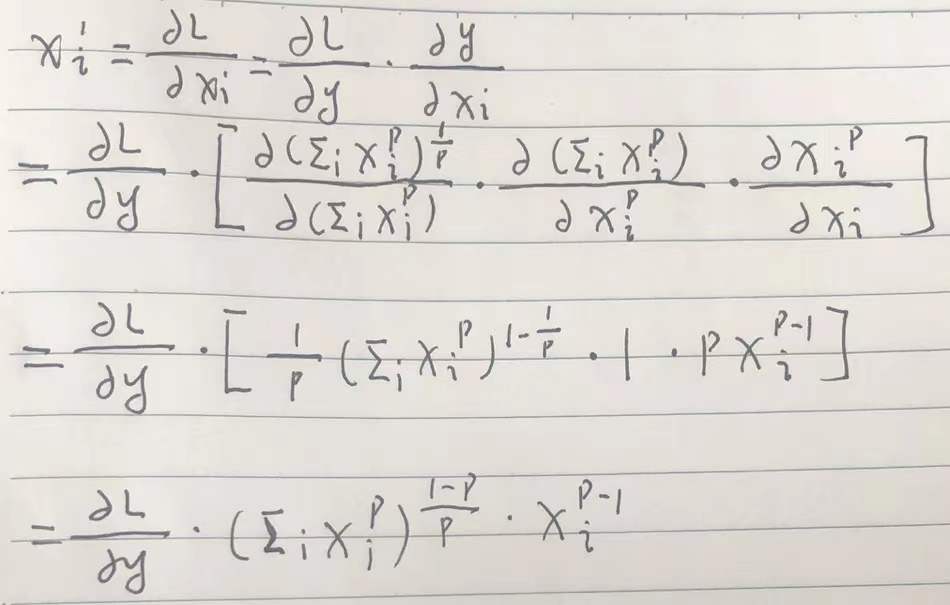 xᵢ' = ∂L/∂xᵢ = ∂L/∂y · ∂y/∂xᵢ
= ∂L/∂y · [ ∂(Σᵢ xᵢᵖ)^(1/p) / ∂(Σᵢ xᵢᵖ) · ∂(Σᵢ xᵢᵖ) / ∂xᵢᵖ · ∂xᵢᵖ / ∂xᵢ ]
= ∂L/∂y · [ 1/p (Σᵢ xᵢᵖ)^(1-1/p) · 1 · p xᵢ^(p-1) ]
= ∂L/∂y · (Σᵢ xᵢᵖ)^((1-p)/p) · xᵢ^(p-1)